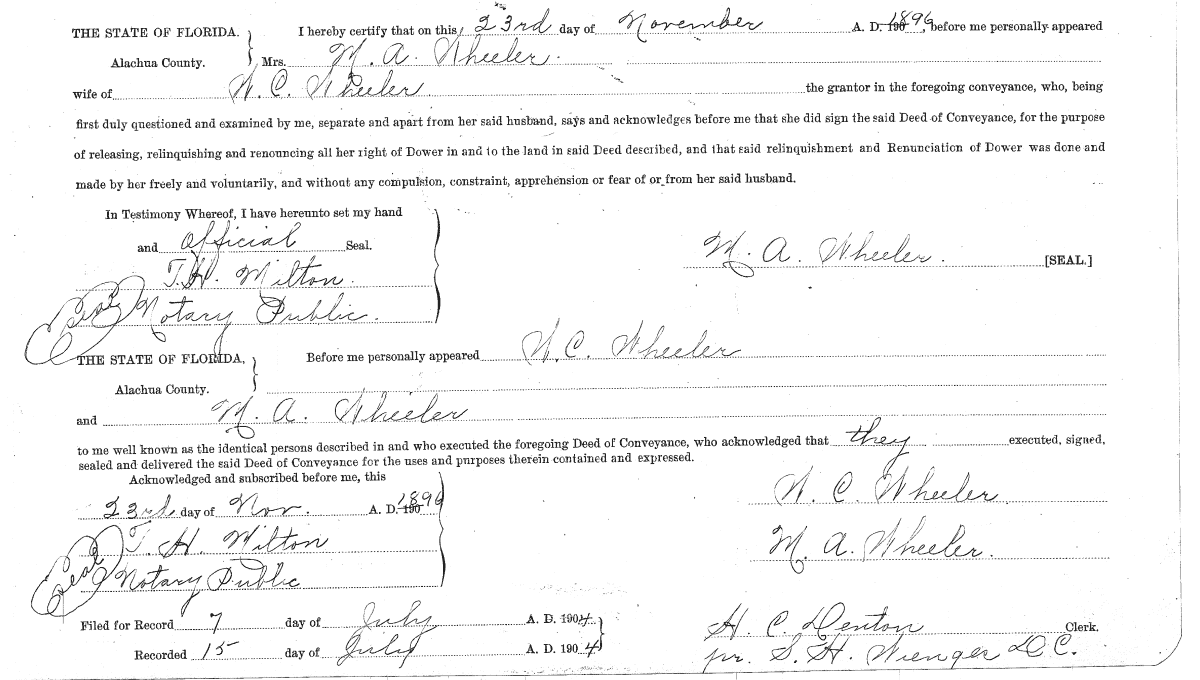 THE STATE OF FLORIDA. I hereby certify that on this 23rd day of November A. D. 190 1896, before me personally appeared
Alachua County. Mrs. M. A. Wheeler.
wife of W. C. Wheeler the grantor in the foregoing conveyance, who, being
first duly questioned and examined by me, separate and apart from her said husband, says and acknowledges before me that she did sign the said Deed of Conveyance, for the purpose
of releasing, relinquishing and renouncing all her right of Dower in and to the land in said Deed described, and that said relinquishment and Renunciation of Dower was done and
made by her freely and voluntarily, and without any compulsion, constraint, apprehension or fear of or from her said husband.
In Testimony Whereof, I have hereunto set my hand
and official Seal.
M. A. Wheeler. [SEAL.]
T. H. Milton.
Seal Notary Public.
THE STATE OF FLORIDA, Before me personally appeared W. C. Wheeler
Alachua County.
and M. A. Wheeler
to me well known as the identical persons described in and who executed the foregoing Deed of Conveyance, who acknowledged that they executed, signed,
sealed and delivered the said Deed of Conveyance for the uses and purposes therein contained and expressed.
Acknowledged and subscribed before me, this
W. C. Wheeler
23rd day of Nov. A. D. 190 1896
T. H. Milton
M. A. Wheeler.
Seal Notary Public
Filed for Record 7 day of July A. D. 1904.
H. C. Denton Clerk.
Recorded 15 day of July A. D. 1904
pr. S. H. Wienges D. C.